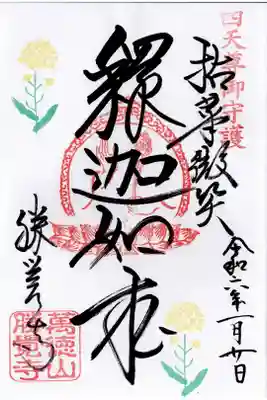 四天尊御守護
拈華微笑
令和六年一月廿日
釋迦如来
勝覚寺
萬徳山
勝覺寺